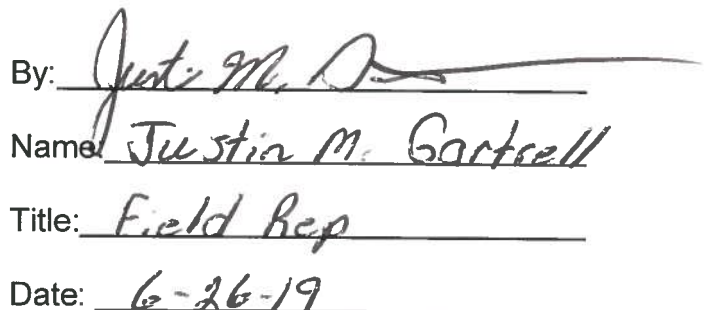 By: Justin M. G
Name: Justin M. Gartrell
Title: Field Rep
Date: 6-26-19